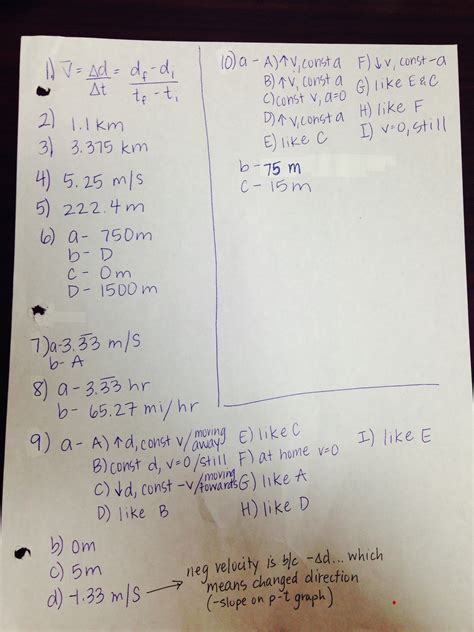 1) V̄ = Δd/Δt = df - di / tf - ti
2) 1.1 km
3) 3.375 km
4) 5.25 m/s
5) 222.4 m
6) a - 750m
b - D
c - 0m
D - 1500 m
7) a - 3.3̅3̅ m/s
b - A
8) a - 3.3̅3̅ hr
b - 65.27 mi/hr
9) a - A) ↑d, const v/moving away
B) const d, v=0/still
C) ↓d, const -v/moving towards
D) like B
E) like C
F) at home v=0
G) like A
H) like D
I) like E
b) 0m
c) 5m
d) -1.33 m/s → neg velocity is b/c -Δd... which
means changed direction
(-slope on p-t graph)
10) a - A) ↑v, const a
B) ↑v, const a
C) const v, a=0
D) ↑v, const a
E) like C
F) ↓v, const -a
G) like E & C
H) like F
I) v=0, still
b - 75 m
c - 15 m